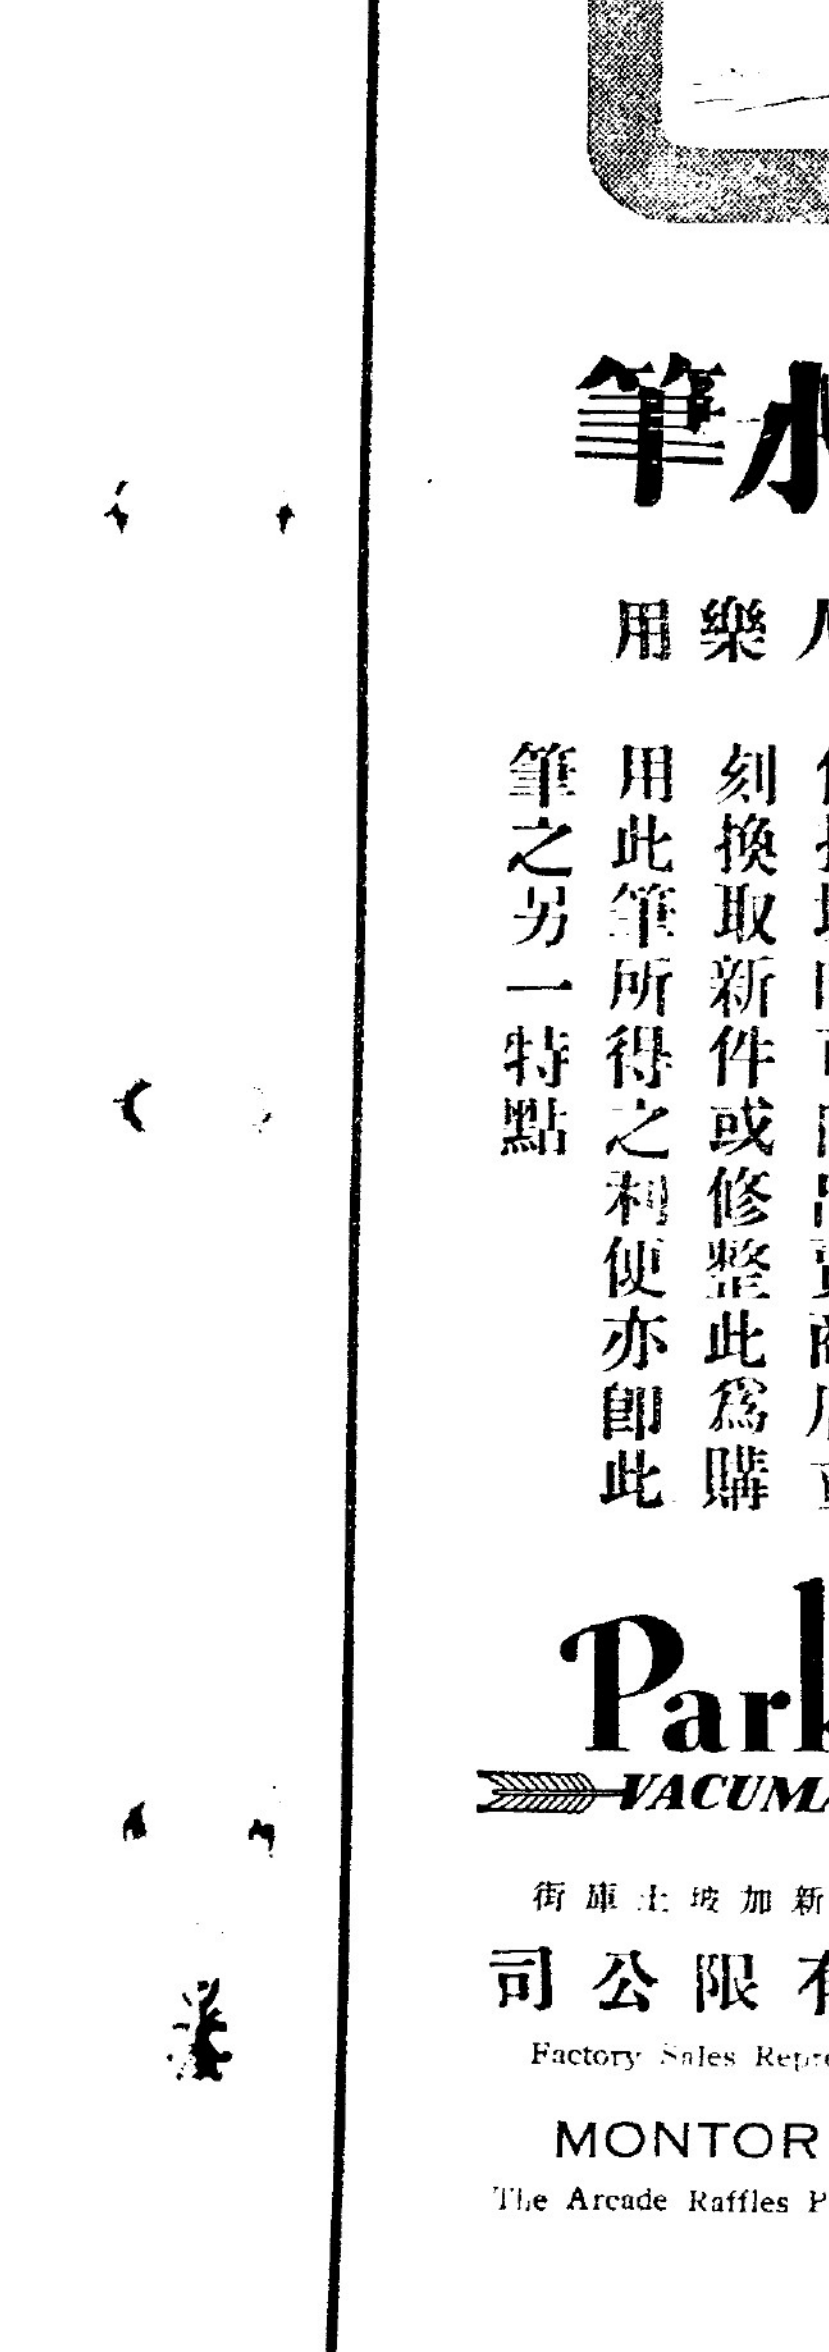 水筆
樂用
刻換取新件或修整此爲購
用此筆所得之利便亦即此
筆之另一特點
Park
VACUMA
新加坡土庫街
限公司
Factory Sales Repre
MONTOR
The Arcade Raffles P